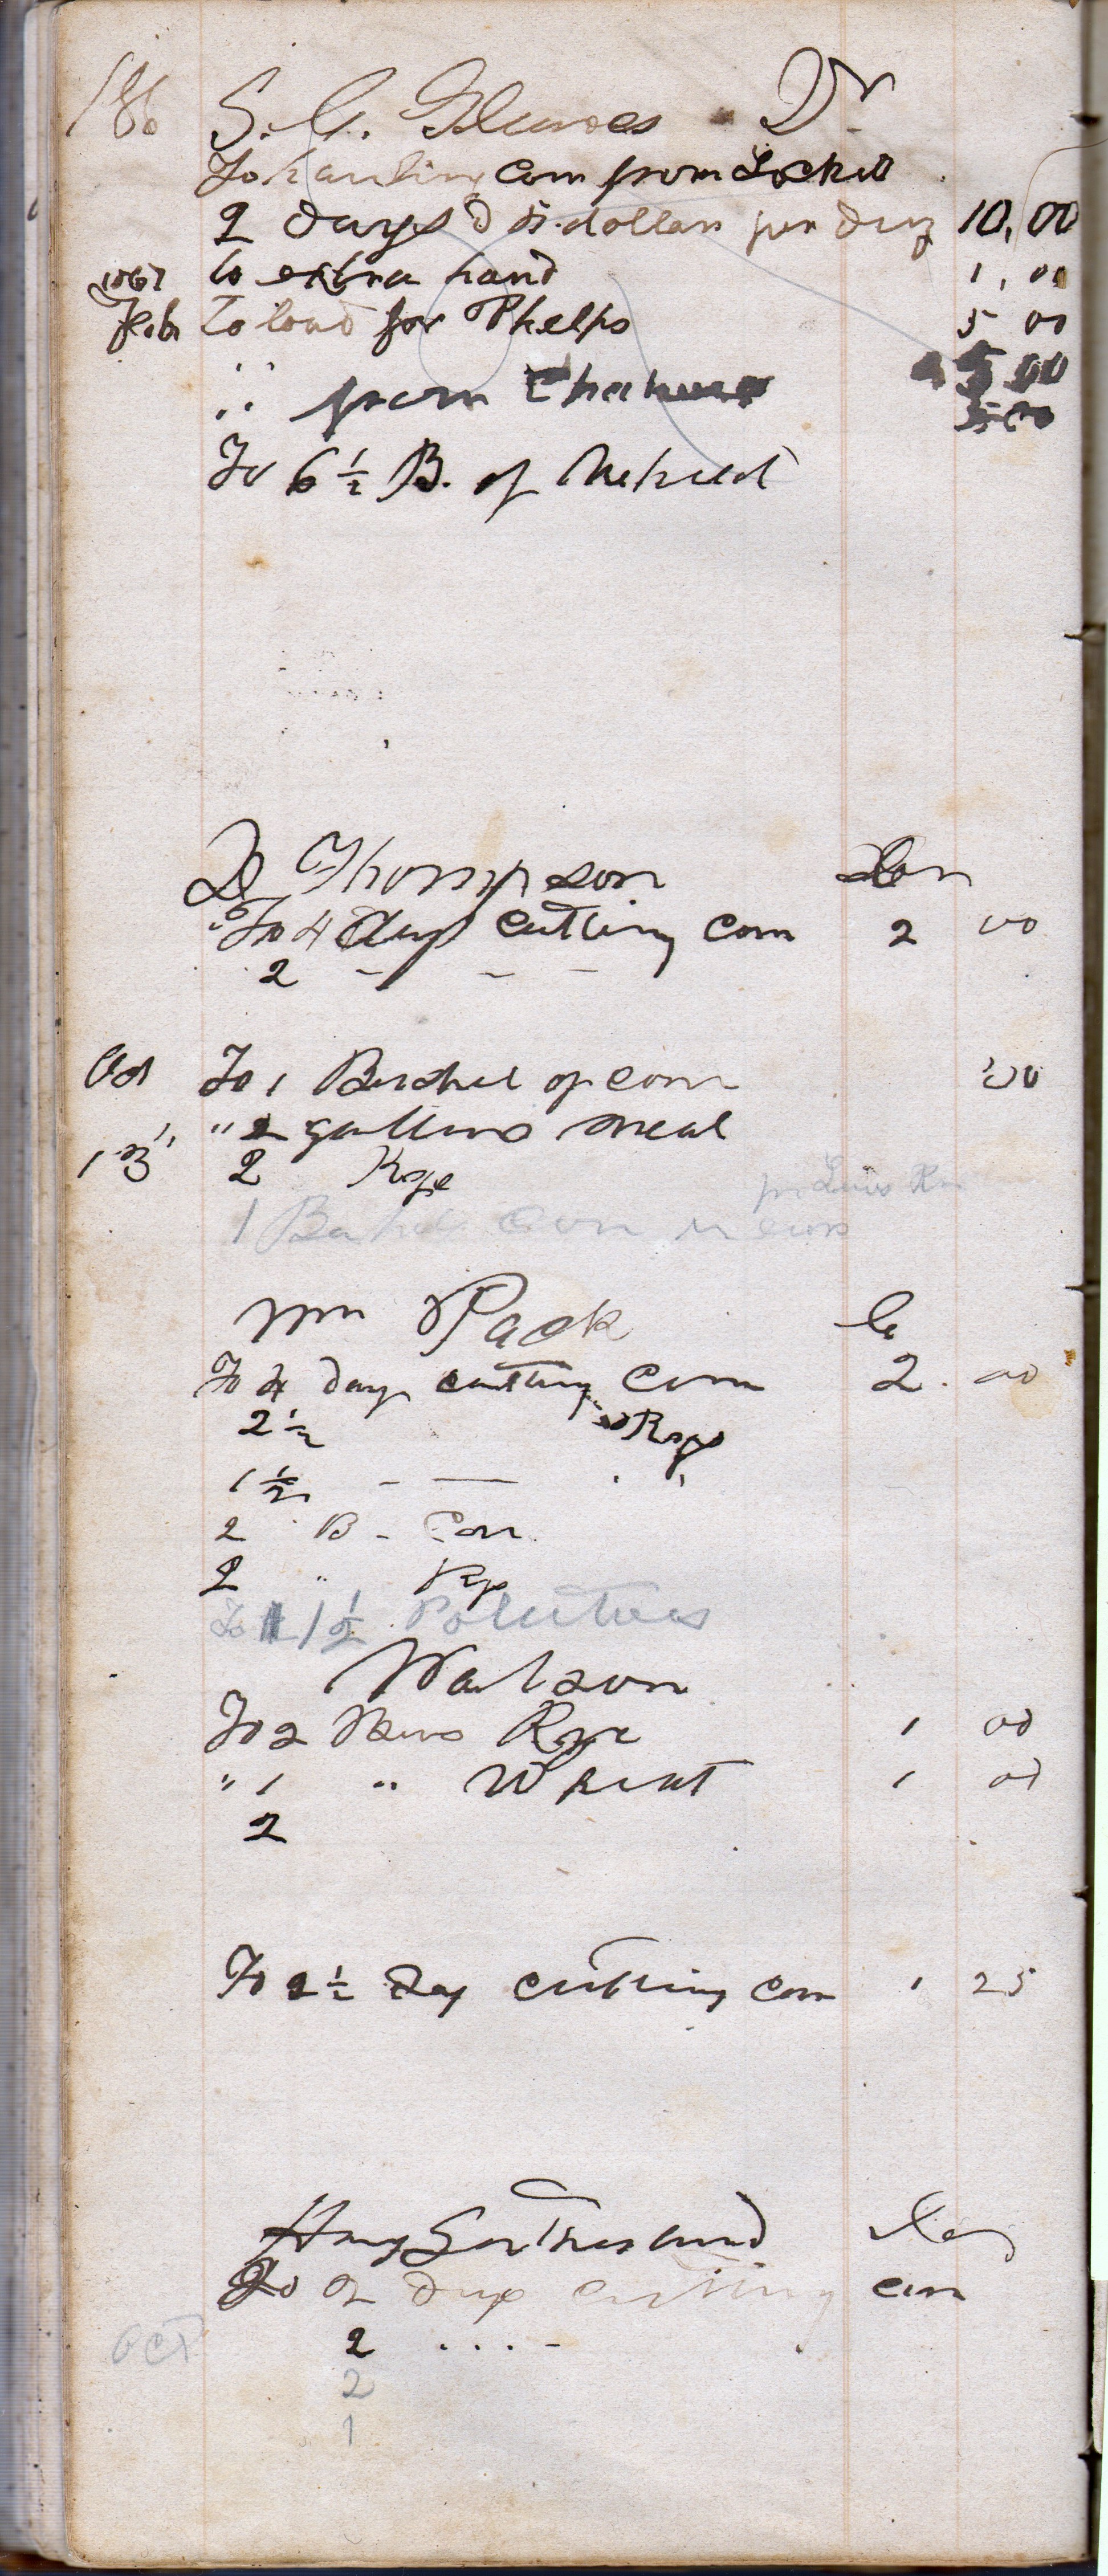 186 S. G. Dr
To hauling corn from Locket
2 days @ 5 dollars per day 10,00
1867 to extra hand 1,00
Feb To load for Phelps 5 00
" from 5 00
To 6 1/2 B. of
D Thompson
To 4 days cutting corn 2 00
2 - - -
Oct To 1 Bushel of corn
" 2 gallons meal
13 2 Rye
1 Bushel corn in ears
Wm Pack Cr
To 4 days cutting corn 2.00
2 1/2 Rye
1 1/2 - -
2 B - Corn
2 " Rye
To 1 1/2 Potatoes
Watson
To 2 Rye 1 00
" 1 " Wheat 1 00
2
To 2 1/2 Day cutting corn 1 25
Sutherland
To 2 days cutting corn
Oct 2 . . . -
2
1